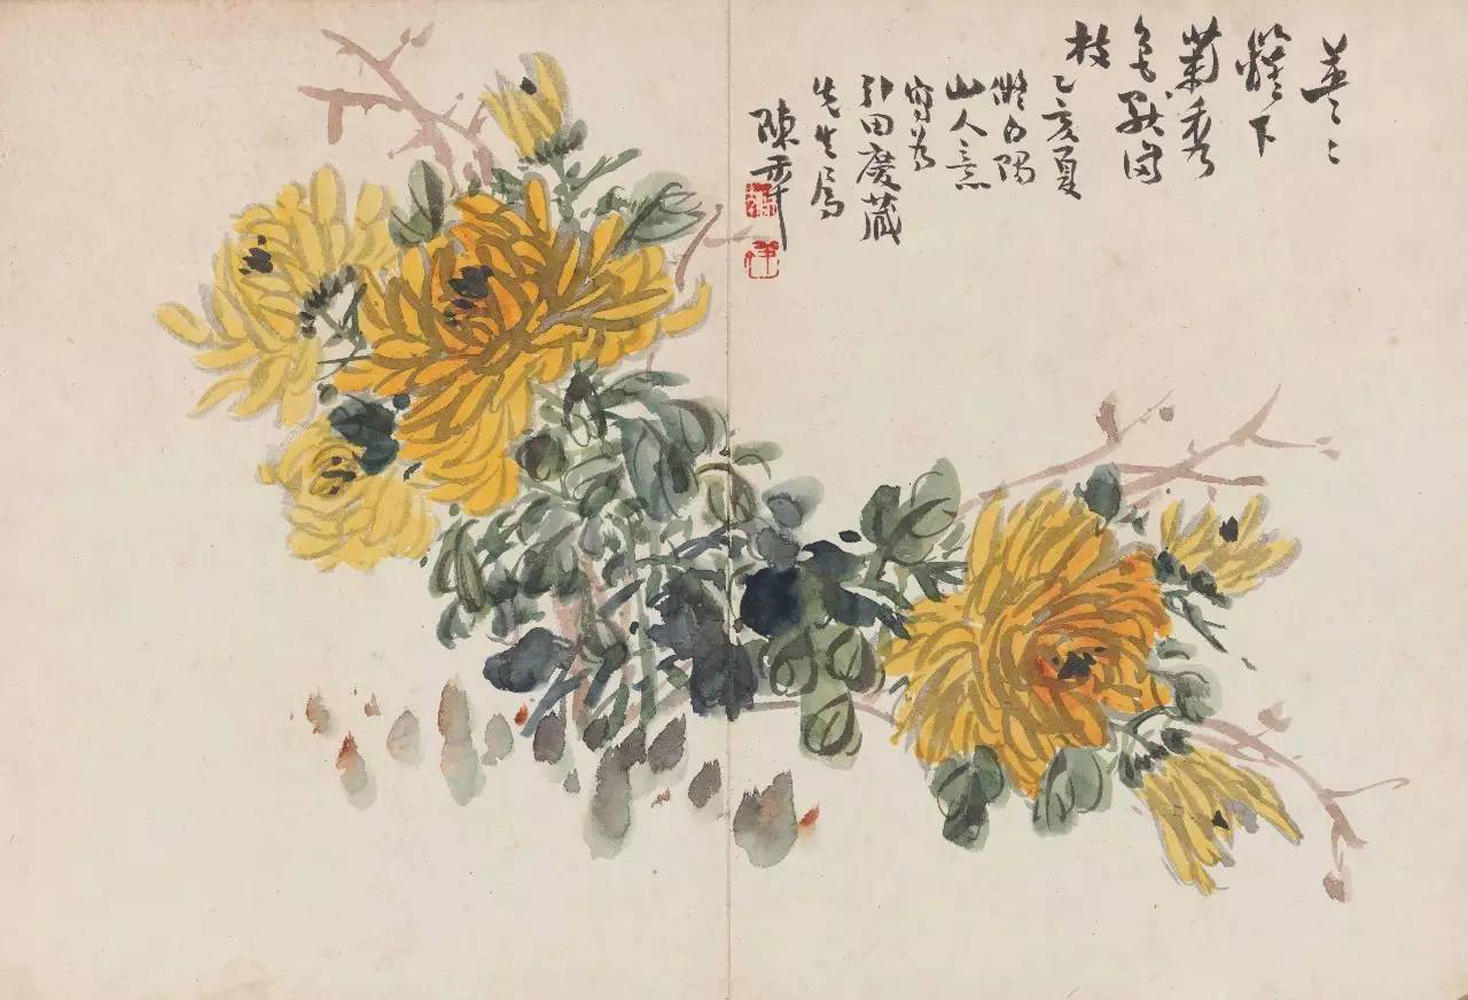 籬下
菊秀
色
枝
乙亥夏
擬白陽
山人意
寫為
引田慶藏
先生屬
陳半丁